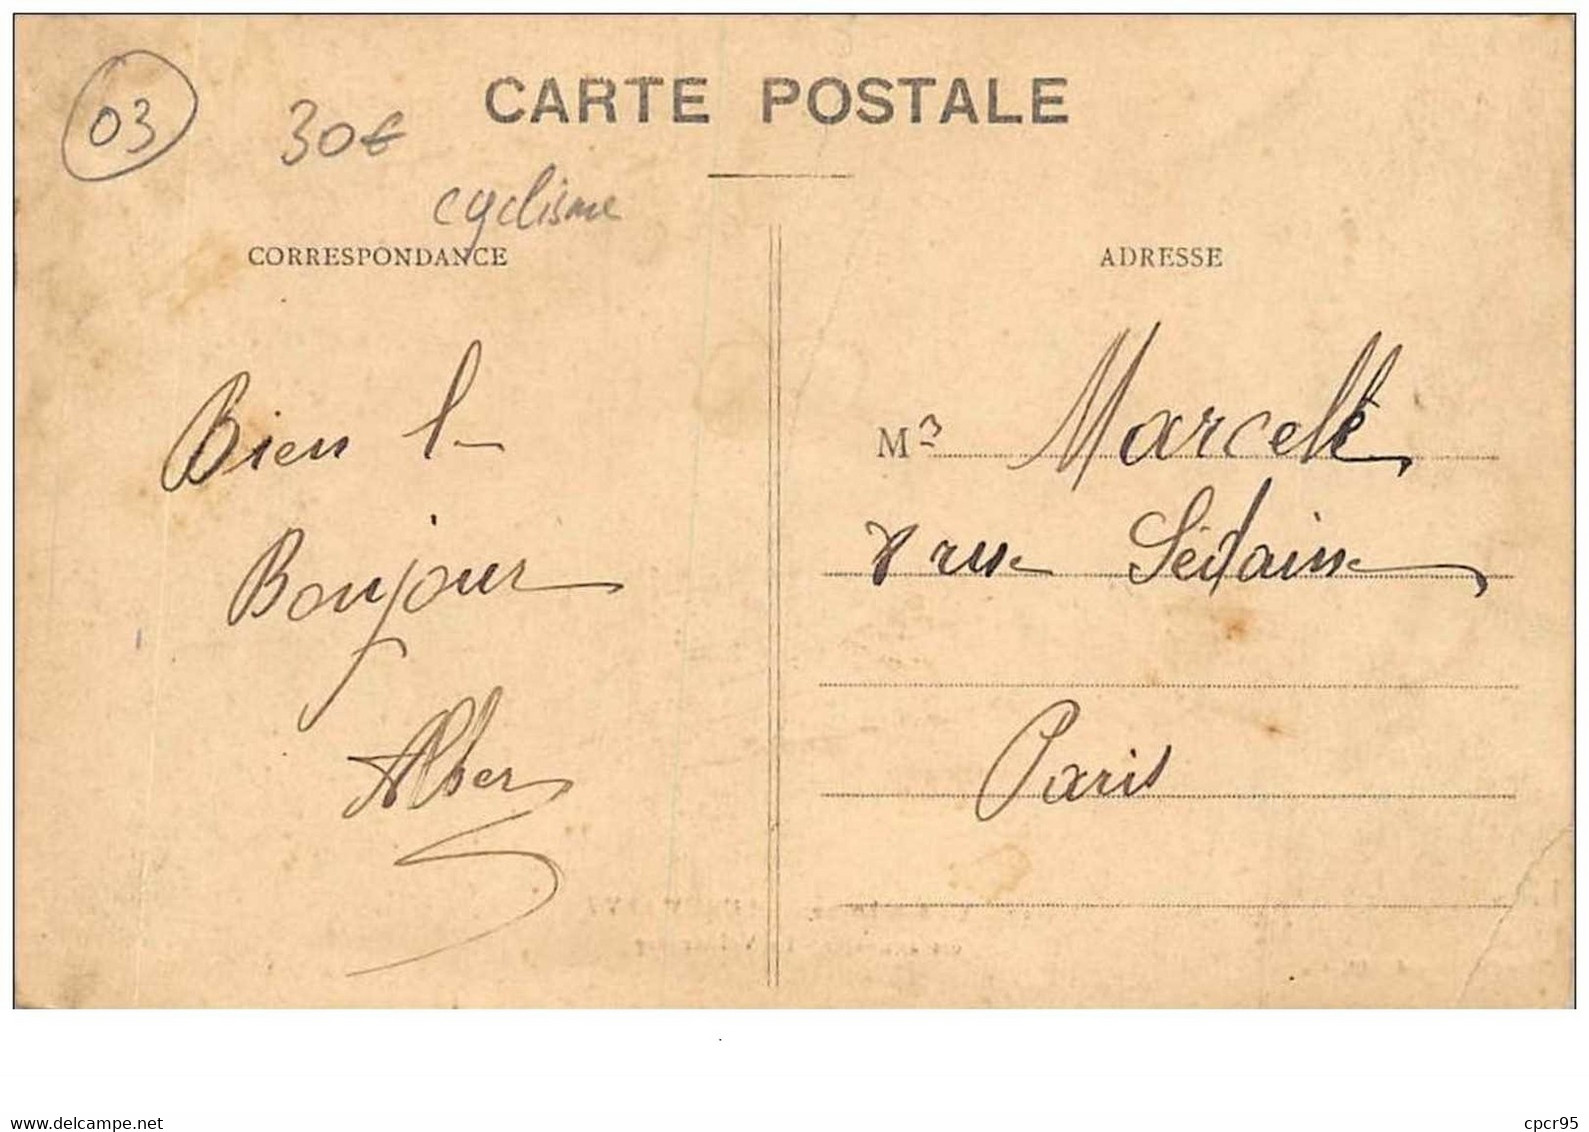 CARTE POSTALE
03
30€
cyclisme
CORRESPONDANCE
ADRESSE
Bien le
Bonjour
Alber
M Marcelle
8 rue Sédaine
Paris
www.delcampe.net
cpcr95